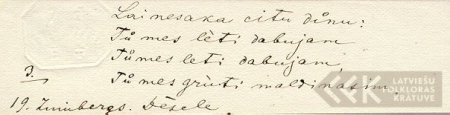 Lai nesaka citu dīnu:
Tū mes lēti dabujam,
Tū mes leti dabujam,
Tū mes grūti maldinasim.
19. Zinibergs. Dēsele
LATVIEŠU
FOLKLORAS
KRĀTUVE